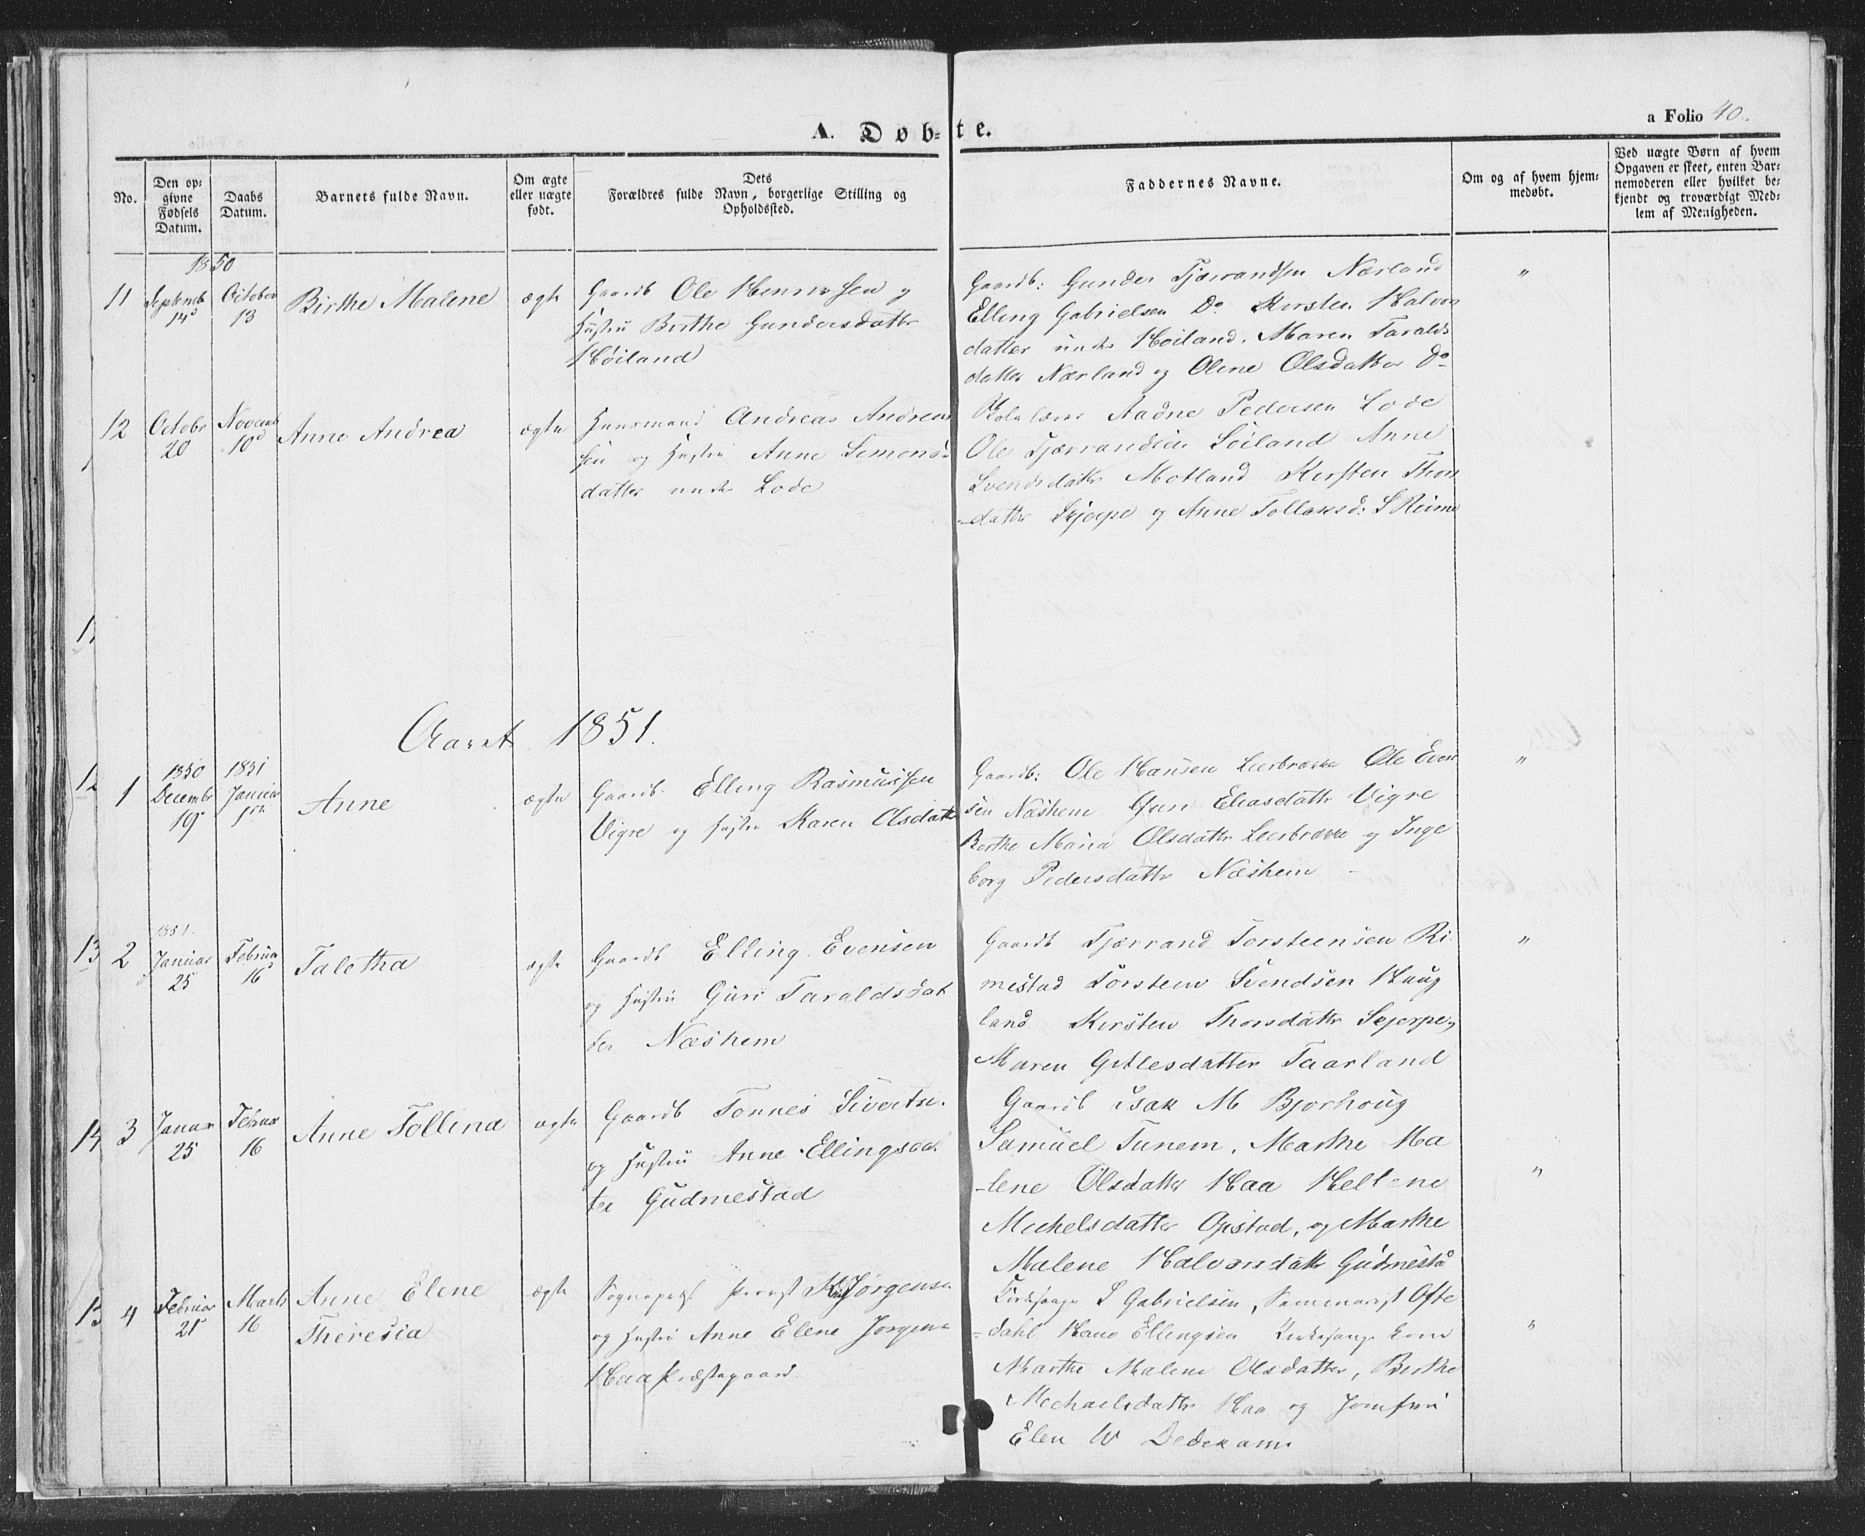 A. Døb-te.
a Folio 40.
No.
Den opgivne Fødsels Datum.
Daabs Datum.
Barnets fulde Navn.
Om ægte eller uægte født.
Dets Forældres fulde Navn, borgerlige Stilling og Opholdssted.
Faddernes Navne.
Om og af hvem hjemmedøbt.
Ved uægte Børn af hvem Opgaven er skeet, enten Barnemoderen eller hvilket bekjendt og troværdigt Medlem af Menigheden.
1850
11 Septemb 14d October 13 Birthe Malene ægte
Gaardb Ole
og
Hustru Birthe Gundersdatter
Høiland
Gaardb: Gunder Tjærrandsen Nærland
Elling Gabrielsen Do Kirsten Halvors
datter under Høiland. Maren Taralds
datter Nærland og Olene Olsdatter Do
"
12 Octobr 20 Novemb 10d Anne Andrea ægte
Huusmand Andreas Andrea
sen og Hustru Anne Simons-
datter under Lode
Aadne Pedersen Lode
Ole Tjærrandsen Søiland Anne
Svendsdatter Motland Kirsten Thors
-datter Skjerpe og Anne Tollaksd: S Reime
11
Aaret 1851.
12 1 1850 Decembr 19 1851 Januar 1ste Anne ægte
Gaardb. Elling Rasmussen
Vigre og Hustru Karen Olsdatter
Gaardb: Ole Hansen Leerbrække Ole Even
sen Næshem Guri Eliasdattr Vigre
Berthe Maria Olsdattr Leerbrække og Inge
borg Pedersdattr Næshem
"
13 2 1851. Januar 25 Februar 16d Taletha ægte
Gaardb Elling Evensen
og Hustru Guri Taraldsdat
ter Næshem
Gaardb Tjærrand Torsteensen Ri-
mestad Torsten Svendsen Haug
land Kirsten Thorsdattr Skjerpe og
Maren Gitlesdatter Taarland
"
14 3 Januar 25 Februar 16 Anne Tollina ægte
Gaardb Tønnes Sivertse.
og Hustru Anne Ellingsdat
ter Gudmestad
Gaardb Isak M Bjorhoug
Samuel Tunem. Marthe Ma
-lene Olsdatter Haa Hellene
Michelsdatter Opstad, og Marthe
Malene Halvorsdattr Gudmestad
"
15 4 Februar 21 Marts 16 Anne Elene
Theresia
ægte
Sognepræst Provst
Jørgensen
og Hustru Anne Elene Jørgens
Haa Præstegaard
Kirkesanger S Gabrielsen, Seminarist Ofte
-dahl Hans Ellingsen Kirkesanger kone
Marthe Malene Olsdatter, Birthe
Mechaelsdattr Haa og Jomfru
Elen W Dedekam
"